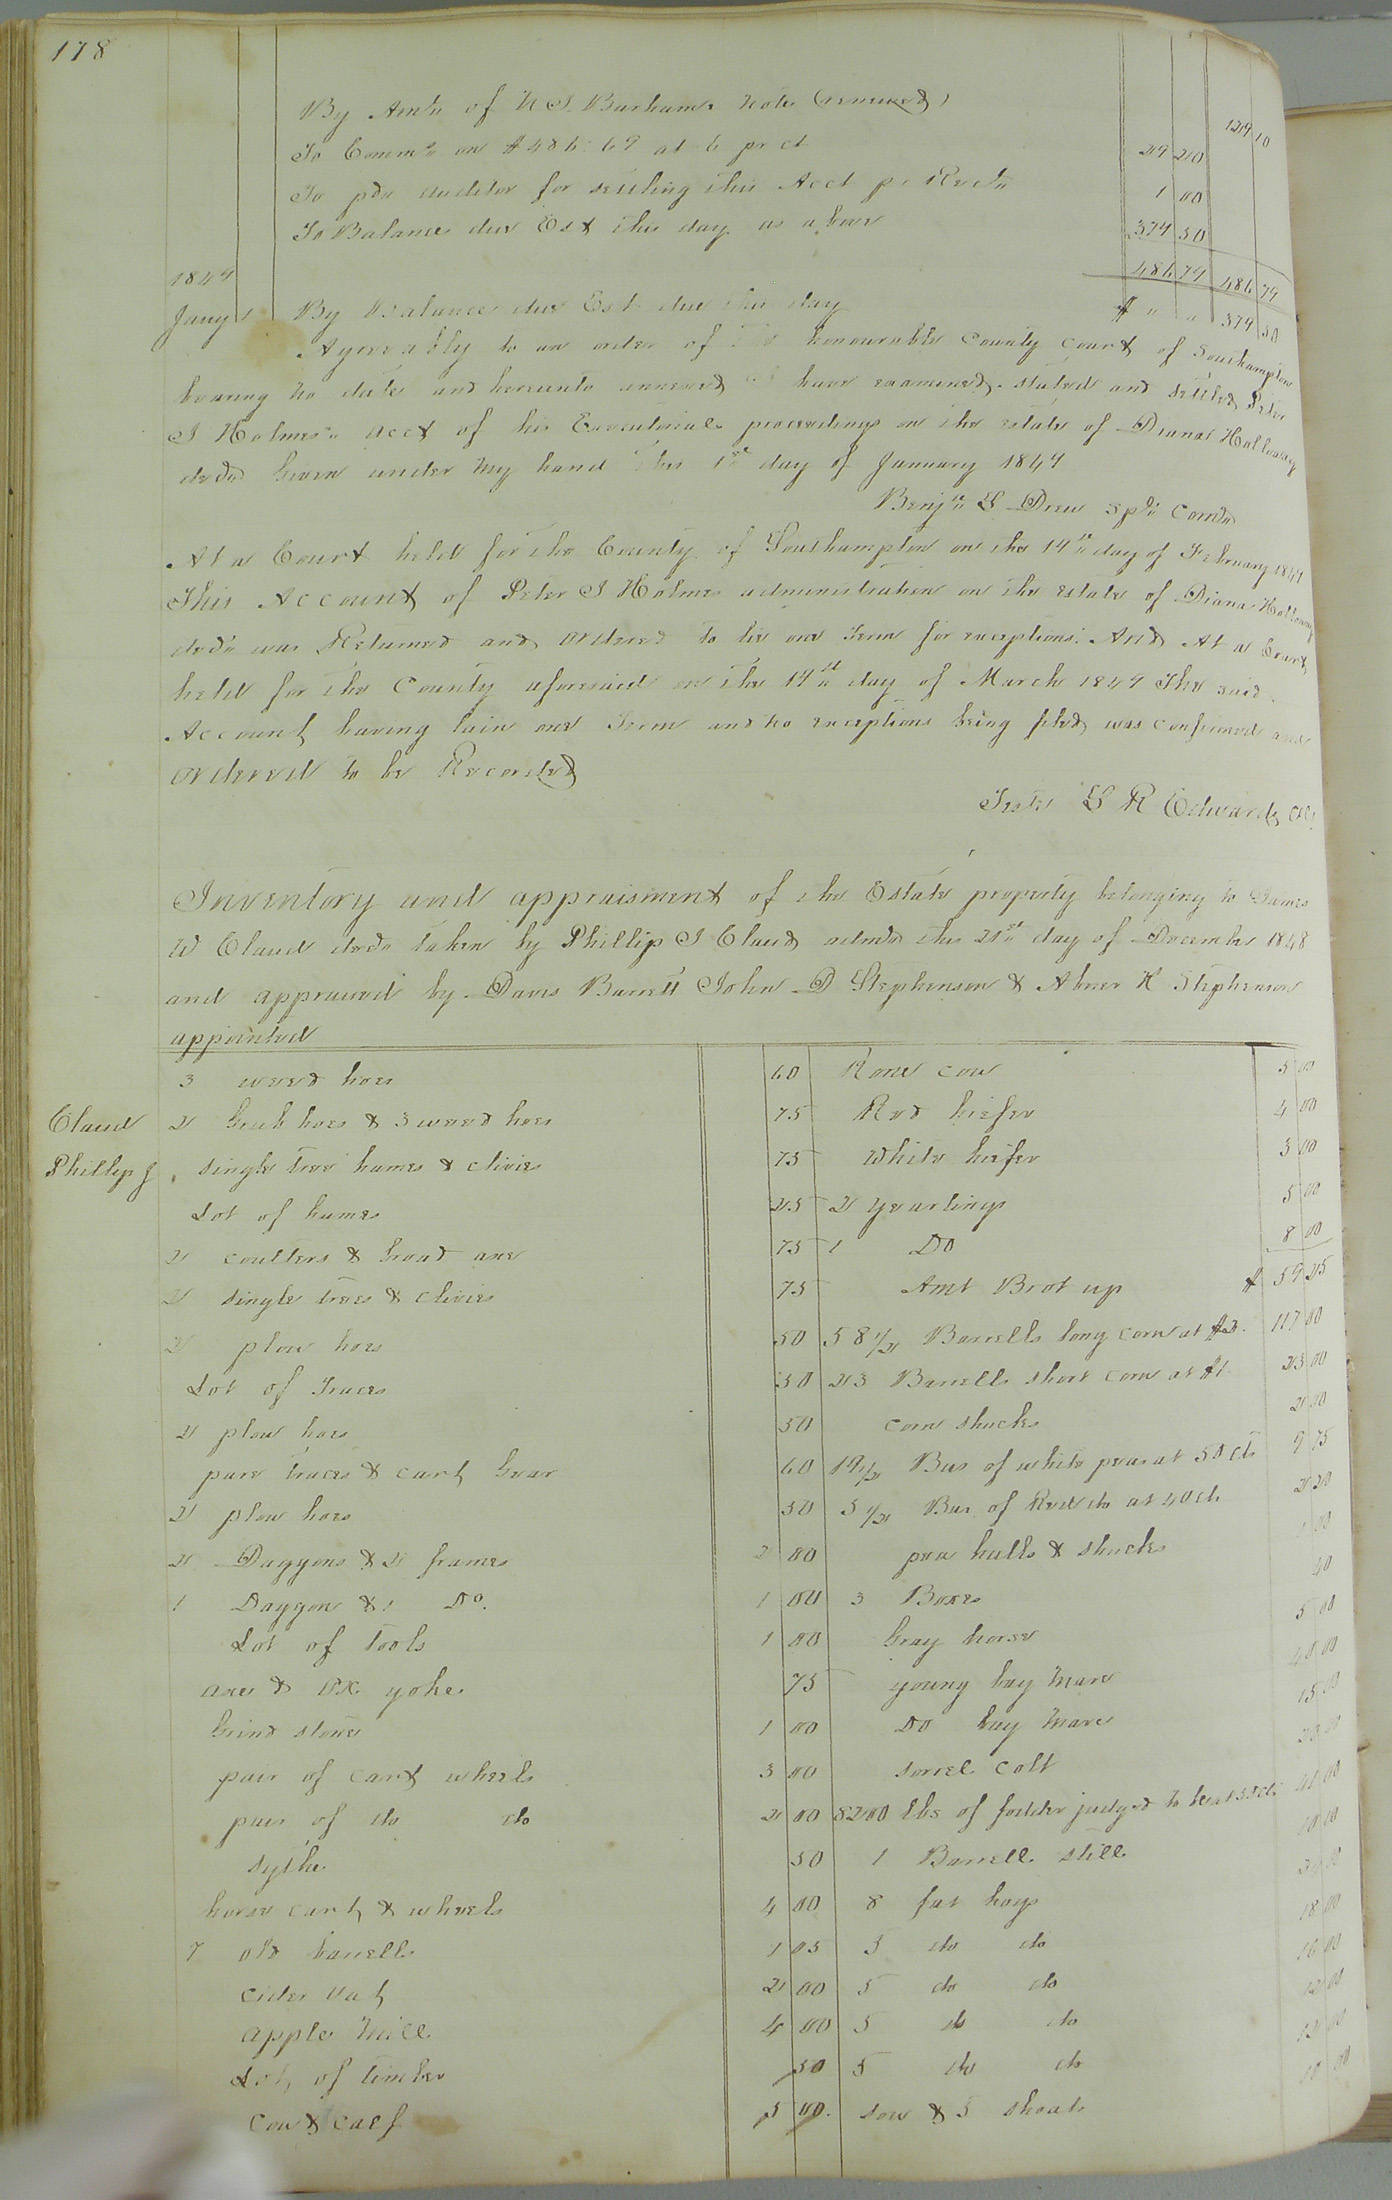 178
By Amt of N S. Barhams Note (removed) 129 10
To Comms on $486:69 at 6 pr ct 29 20
To pd auditor for settling this Acct pr Rect 1 00
To Balance due Est this day as above 379 50
486 79 486 79
1849
Jany 1 By Balance due Est due this day $ " " 379 50
Agreeably to an order of the honourable County Court of Southampton
bearing no date and hereunto annexed I have examined. stated and settled Peter
J Holmes's acct of his Executorial proceedings on the estate of Diana Holloway
decd Given under My hand this 1st day of January 1849
Benjn G Drew Spl Comr
At a Court held for the County of Southampton on the 19th day of February 1849
This Account of Peter J Holmes administration on the estate of Diana Holloway
decd was Returned and ordered to lie one Term for exceptions: And At a Court
held for the County aforesaid on the 19th day of March 1849 The said
Account having lain one Term and no exceptions being filed, was confirmed and
ordered to be Recorded
Teste L R Edwards CSC
Inventory and appraisment of the Estate property belonging to James
W Claud decd taken by Phillip J Claud admr this 21st day of December 1848
and appraised by Davis Barrett John D Stephenson & Abner H Stephenson
appointed
3 weed hoes 60 Rone cow 5 00
Claud 2 Grub hoes & 3 weed hoes 75 Red hiefer 4 00
Phillip J single tree hames & clivies 75 White hiefer 3 00
Lot of hames 25 2 yearlings 5 00
2 coulters & broad axe 75 1 Do 8 00
2 single trees & clivies 75 Amt Brot up $ 59 25
2 plow hoes 50 58 1/2 Barrells long corn at $2. 117 00
Lot of Traces 50 23 Barrells short corn at $1. 23 00
2 plow hoes 50 corn shucks 2 00
pare traces & cart Gear 60 19 1/2 Bus of white peas at 50 cts 9 75
2 plow hoes 50 5 1/2 Bus. of Red do at 40 cts 2 20
2 Daggons & 2 frames 2 00 pea hulls & shucks 1 00
1 Daggon & 1 Do. 1 00 3 Boxes 40
Lot of Tools 1 00 Gray horse 5 00
axe & ox yoke 75 young bay Mare 40 00
Grind stone 1 00 Do bay Mare 15 00
pair of cart wheels 3 00 sorrel colt
pair of do do 2 00 8200 Lbs of fodder judged to be at 55 cts
sythe 50 1 Barrell still 10 00
horse cart & wheels 4 00 8 fat hogs
7 old barrells 1 05 5 do do 18 00
cider vat 2 00 5 do do 16 00
apple Mill 4 00 5 do do 12 00
Lot of timber 50 5 do do 12 00
Cow & calf 5 00. sow & 5 shoats 10 00